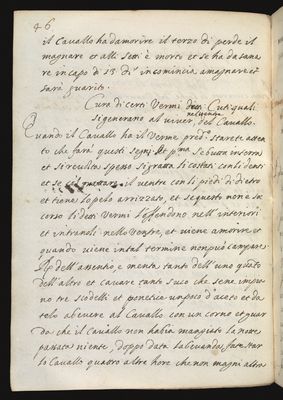 46
il Cavallo ha da morire il terzo dì perde il
magnare et alli sette è morto et se ha da sana
re in capo di 13 dì incomincia a magnare et
sarà guarito.
Cura di certi Vermi detti quali
si generano al viver nel ventre del Cavallo.
Quando il Cavallo ha il Verme starete atten
to che farà questi segni, et p.ma se butta in terra
et si revolta spesso si gratta li costati con li denti
et se il ventre con li piedi di dietro
et tiene lo pelo arrizzato, et se questo non è so
corso li detti Vermi nell' interiori
et intranoli nello Ventre, et viene a morire et
quando viene in tal termine non può campare.
dell' assentio, e menta, tanti dell' uno quāto
dell' altro et cavare tanto suco che sene impie
no tre scodelli et ponetice un poco d'aceto et da
telo a bevere al Cavallo con un corno et guar
da che il Cavallo non habia mangiato la notte
passata niente, doppo data la bevanda, fate star
lo Cavallo quattro altre hore che non magni altro